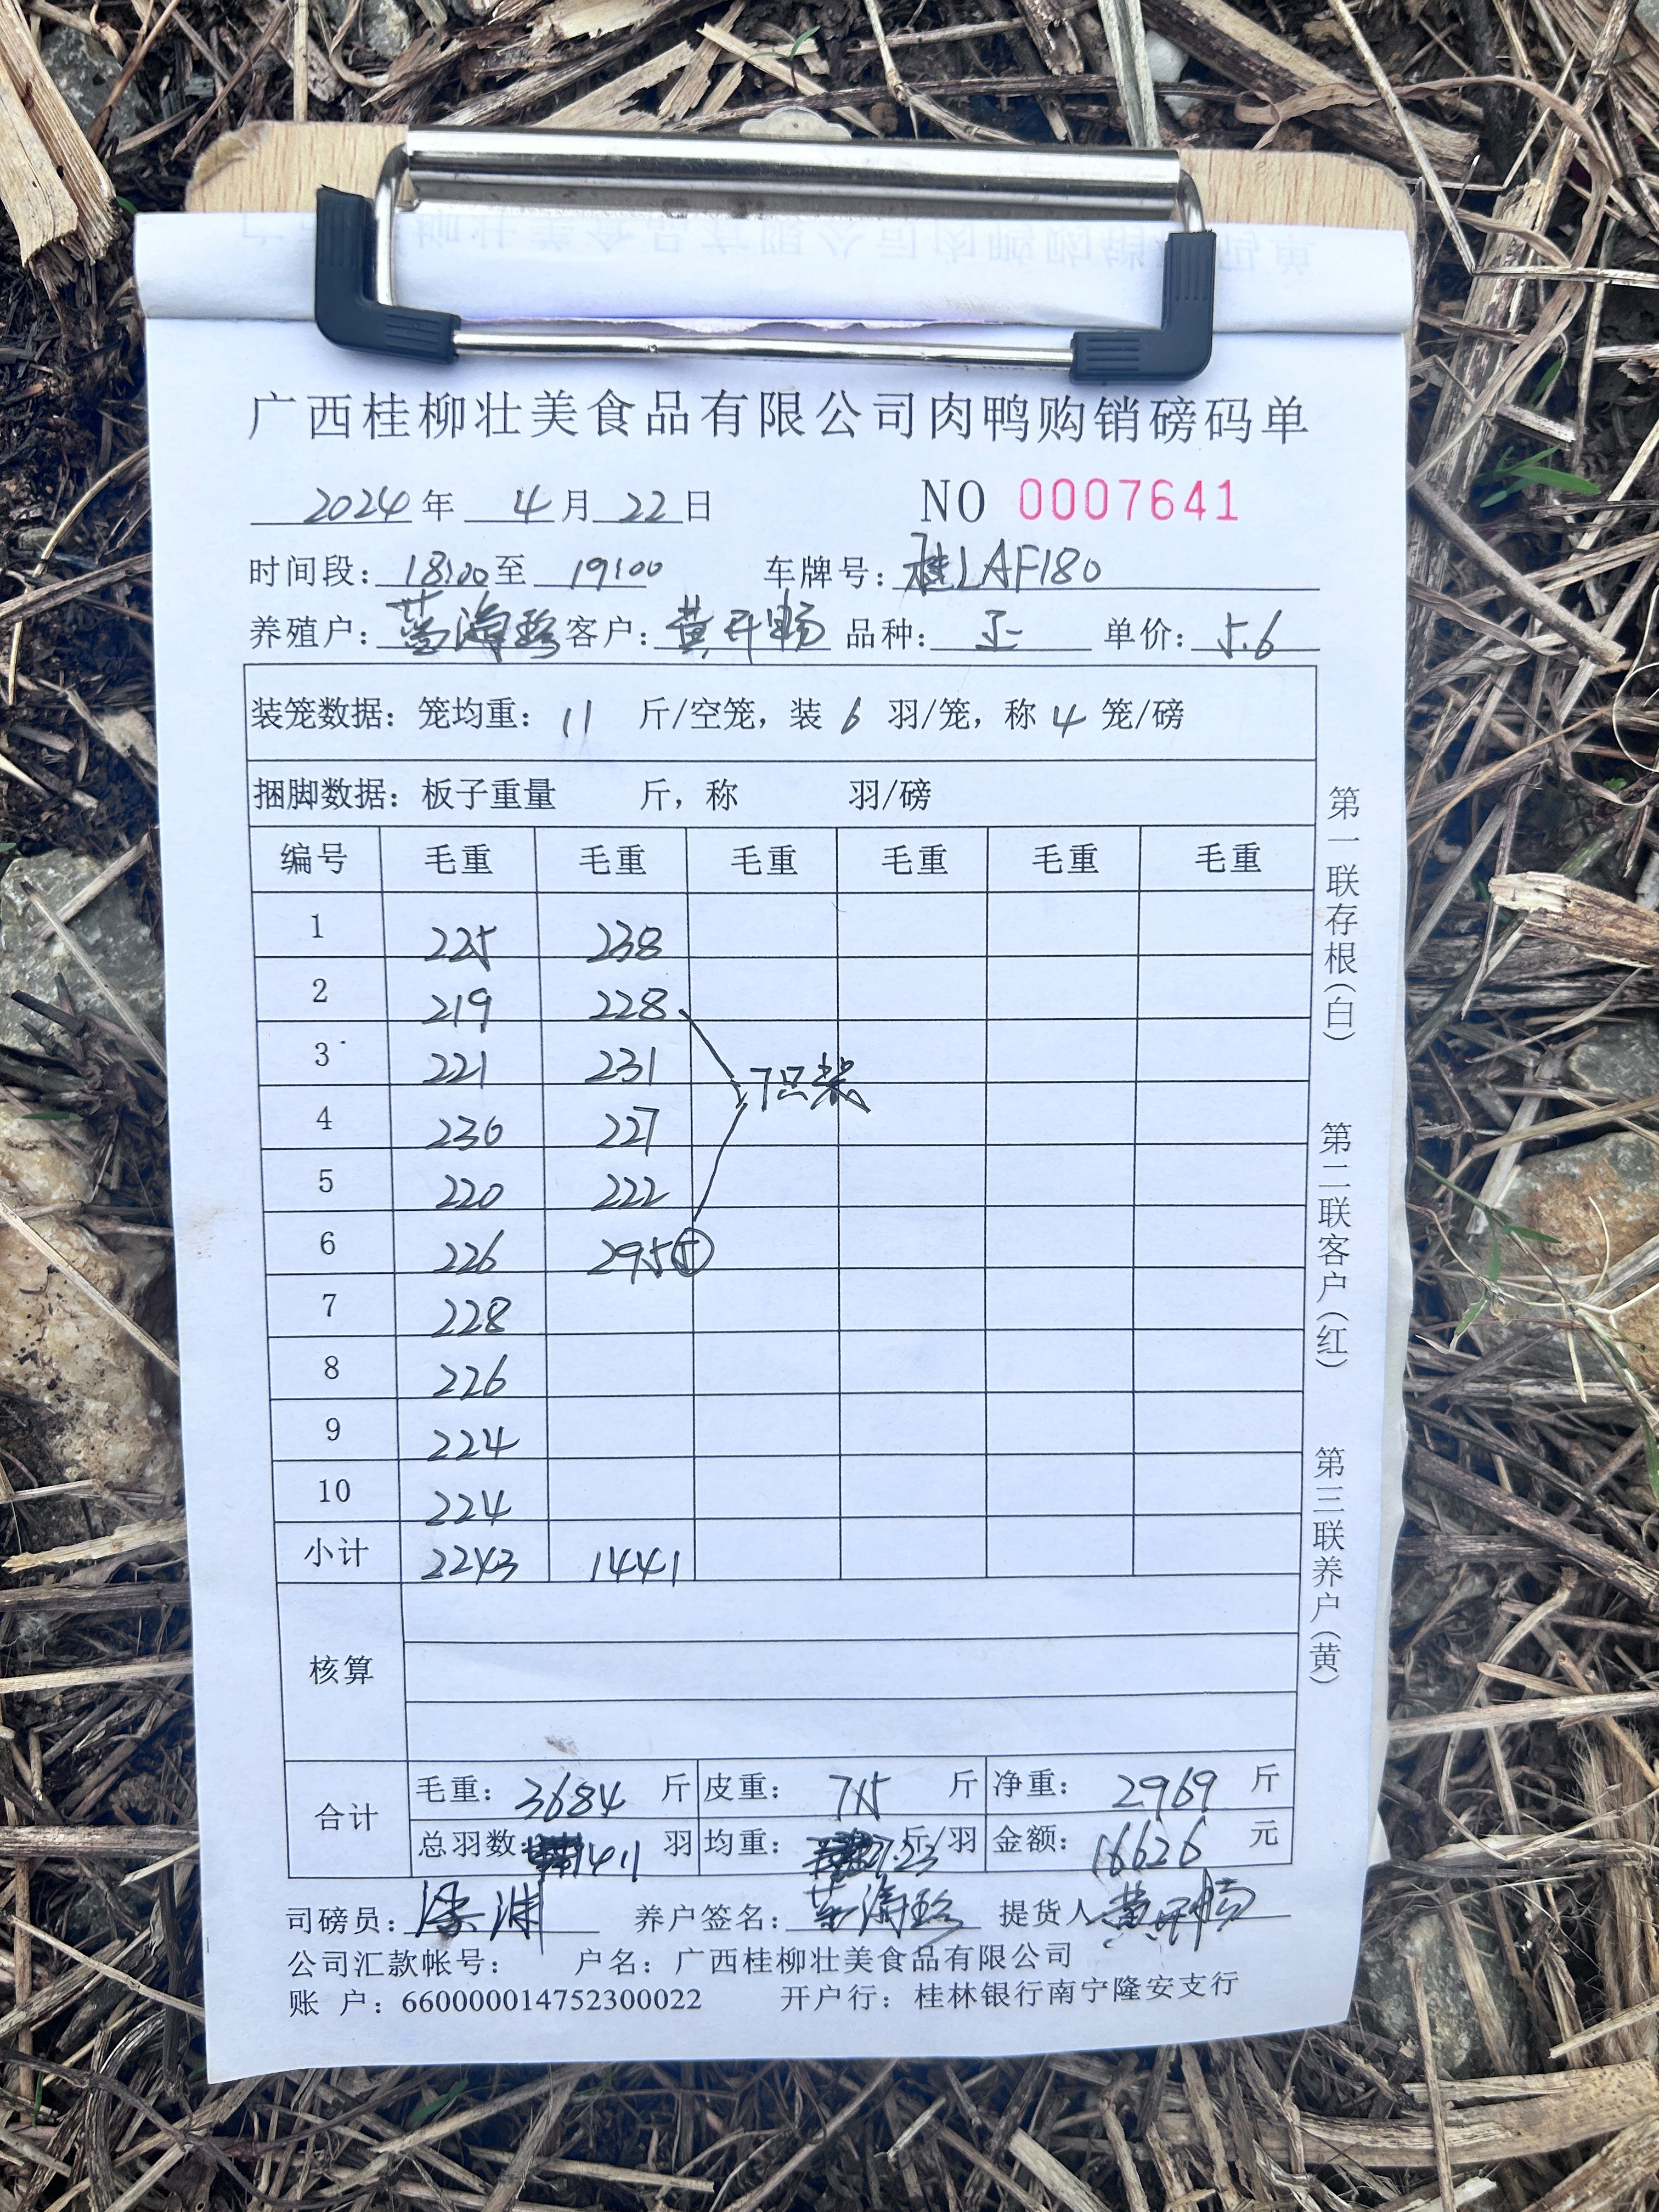 广西桂柳壮美食品有限公司肉鸭购销磅码单
2024年 4月22日 NO 0007641
时间段：18:00至 19:00 车牌号：桂LAF180
养殖户： 客户：黄 品种： 单价：5.6
装笼数据：笼均重：11 斤/空笼，装 6 羽/笼，称 4 笼/磅
捆脚数据：板子重量 斤，称 羽/磅
编号 毛重 毛重 毛重 毛重 毛重 毛重
1 225 238
2 219 228
3 221 231 7只装
4 230 227
5 220 222
6 226 295 ⑤
7 228
8 226
9 224
10 224
小计 2243 1441
核算
合计 毛重：3684 斤 皮重：715 斤 净重：2969 斤
总羽数：411 羽 均重：7.23 斤/羽 金额：16626 元
司磅员： 养户签名： 提货人 黄
公司汇款帐号： 户名：广西桂柳壮美食品有限公司
账 户：660000014752300022 开户行：桂林银行南宁隆安支行
第一联存根（白） 第二联客户（红） 第三联养户（黄）